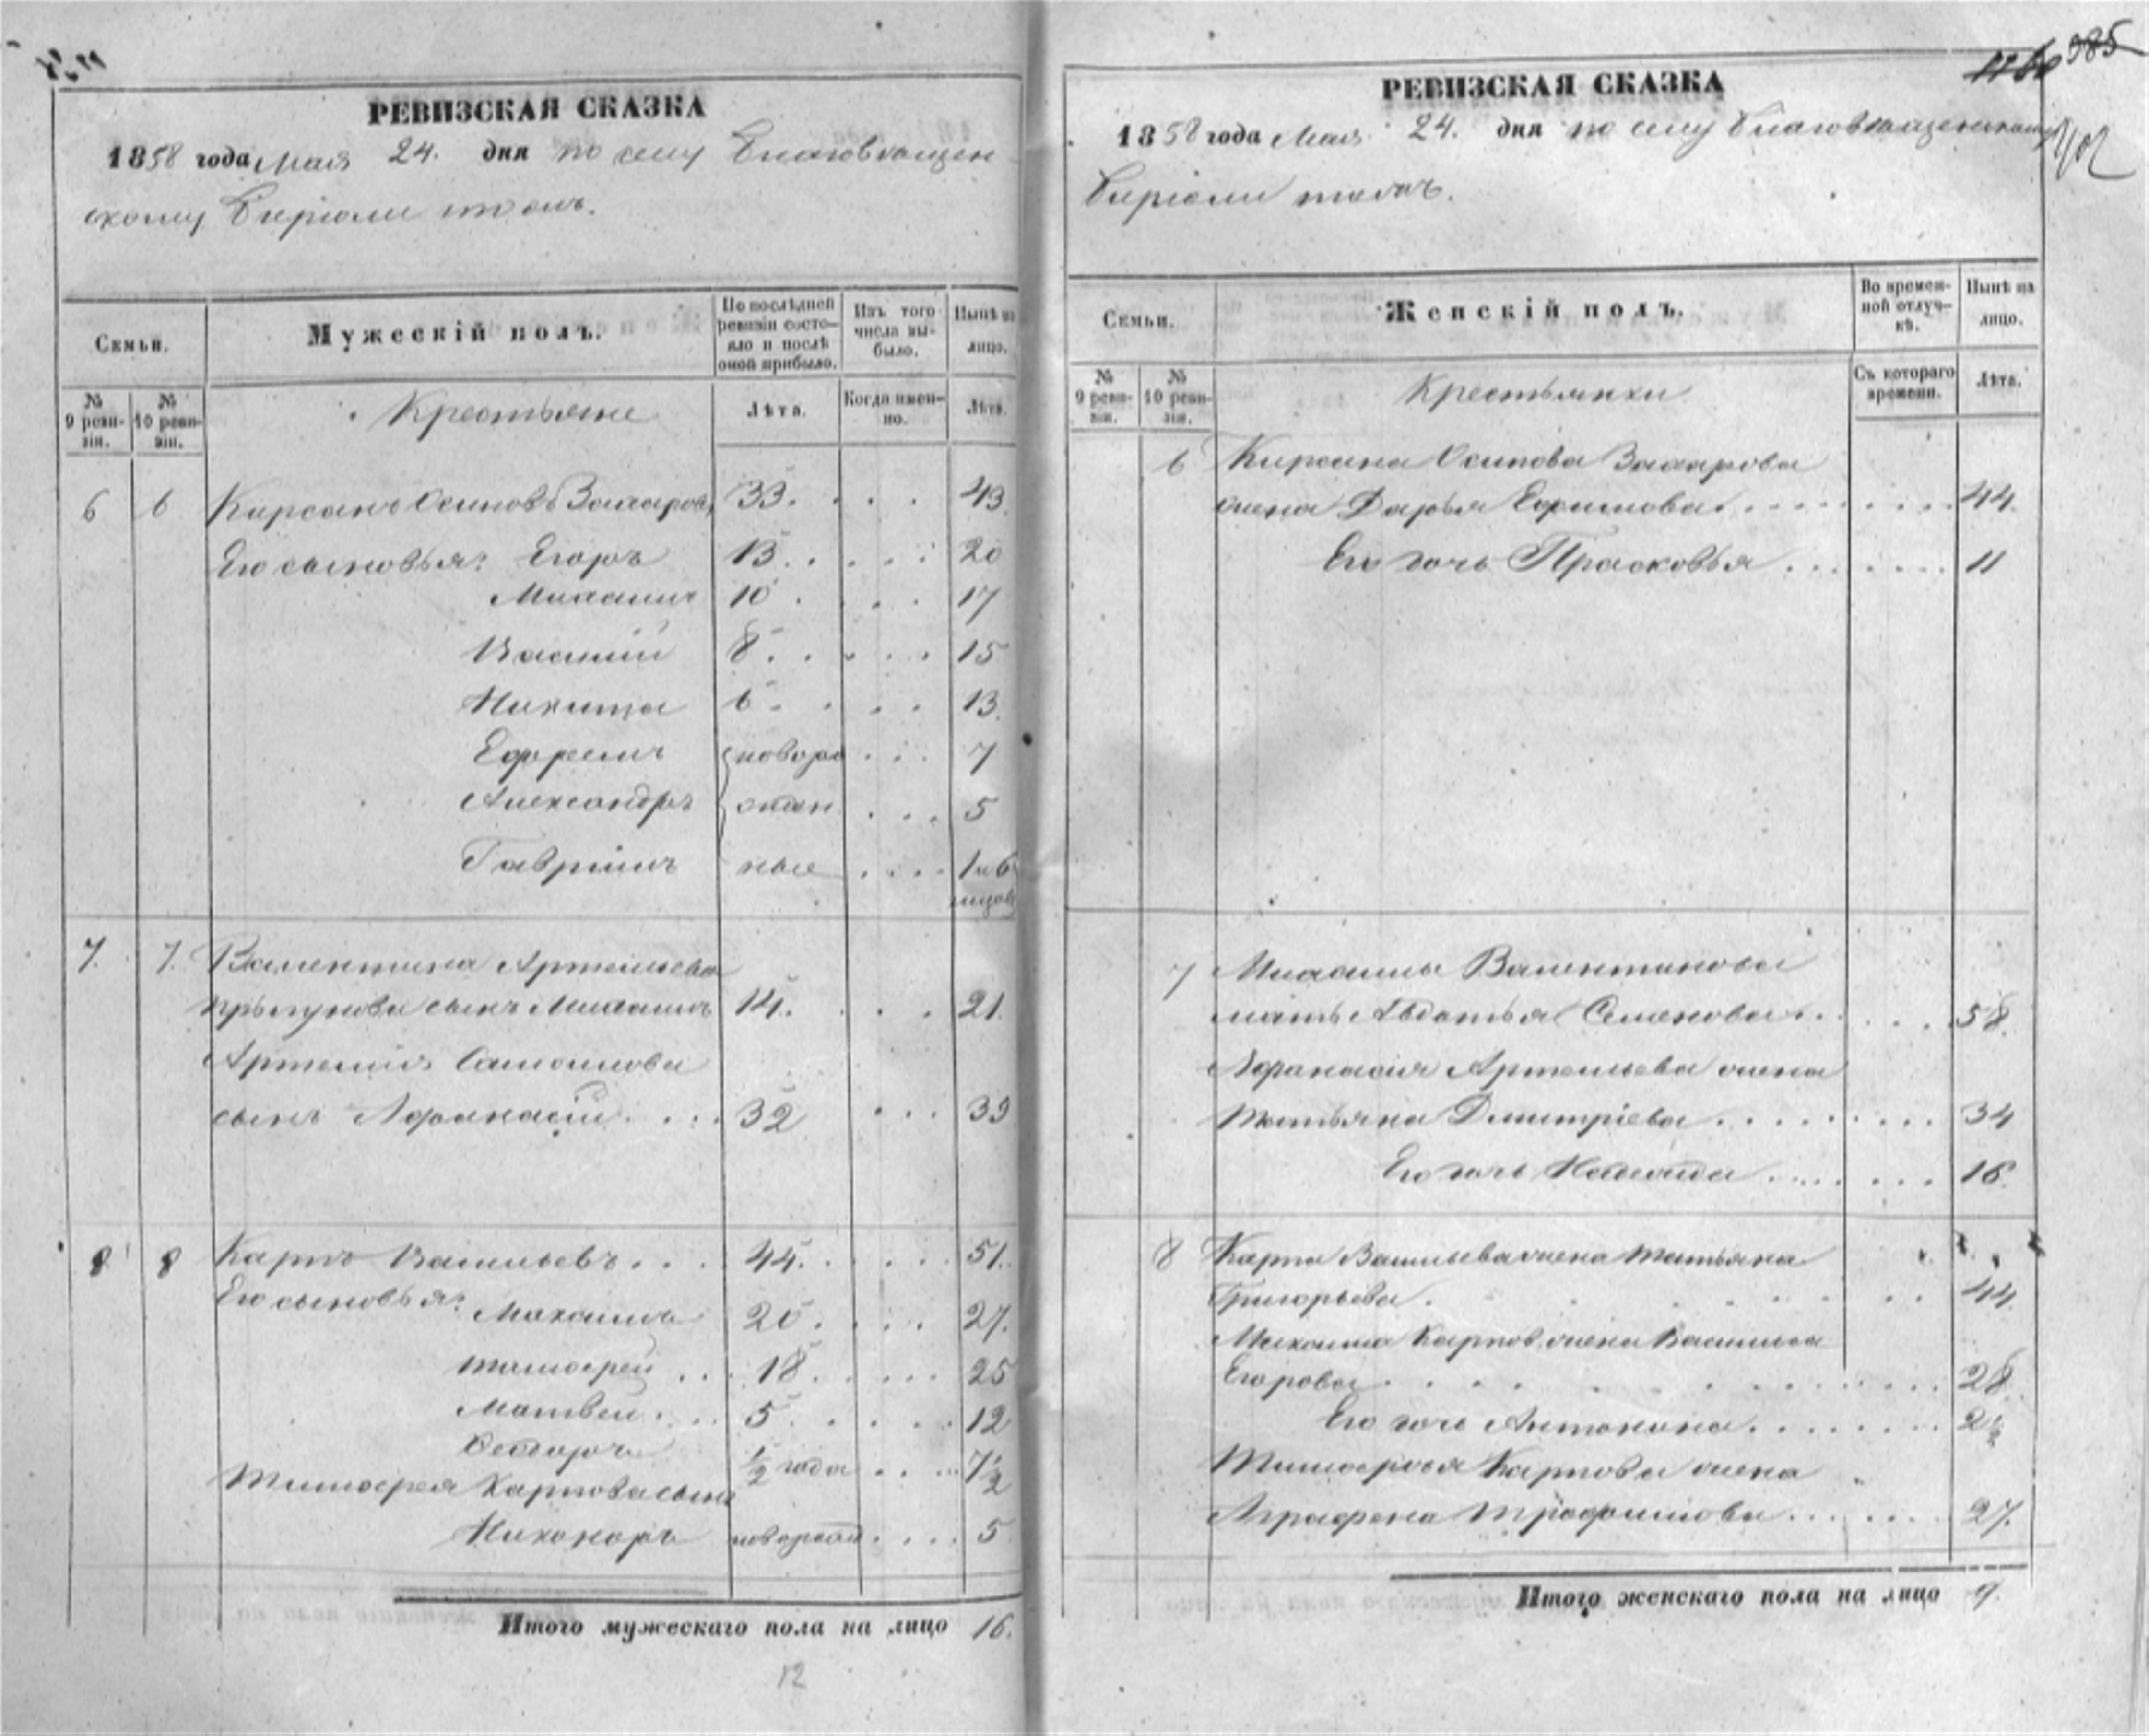 РЕВИЗСКАЯ СКАЗКА
1858 года Мая 24. дня по селу Благовѣщен-
скому Бирюли тожъ.
Семьи.
Мужескій полъ.
По послѣдней ревизіи состояло и послѣ оной прибыло.
Изъ того числа выбыло.
Нынѣ на лицо.
№ 9 ревизіи.
№ 10 ревизіи.
Крестьяне
Лѣта.
Когда именно.
Лѣта.
6 6 Кирсанъ Осиповъ Захаровъ 33. 43.
Его сыновья: Егоръ 13. 20
Михаилъ 10 17
Василій 8. 15
Никита 6. 13.
Ефремъ новоро 7
Александръ жден 5
Гавріилъ ные 1 и 6
месяцов
7. 7. Валентина Артемьева
сынъ Михаилъ 14. 21.
Артемія Самоилова
сынъ Афанасій 32 39
8 8 Карпъ Васильевъ 44. 51.
Его сыновья:
Михаилъ 20. 27.
Тимофей 18. 25
Матвей 5. 12
Федоръ ½ года 7½
Тимофея Карпова сынъ
Никоноръ новорожд 5
Итого мужескаго пола на лицо 16.
12
985
РЕВИЗСКАЯ СКАЗКА
1858 года Мая 24. дня по селу Благовѣщенскому
Бирюли тожъ.
Семьи.
Женскій полъ.
Во временной отлучкѣ.
Нынѣ на лицо.
№ 9 ревизіи.
№ 10 ревизіи.
Крестьянки
Съ котораго времени.
Лѣта.
6 Кирсана Осипова Захарова
жена Дарья Ефимова 44.
Его дочь Прасковья 11
7 Михаилы Валентинова
мать Авдотья Семенова 58.
Афанасія Артемьева жена
Татьяна Дмитріева 34
Его дочь Надежда 16.
8 Карпа Васильева жена Татьяна
Григорьева 44.
Михаила Карпов. жена Василиса
Егорова 28.
Его дочь Антонина 2½
Тимофея Карпова жена
Аграфена Трофимова 27.
Итого женскаго пола на лицо 9.